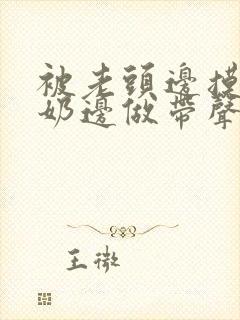 被老頭邊摸
奶邊做帶聲
王微